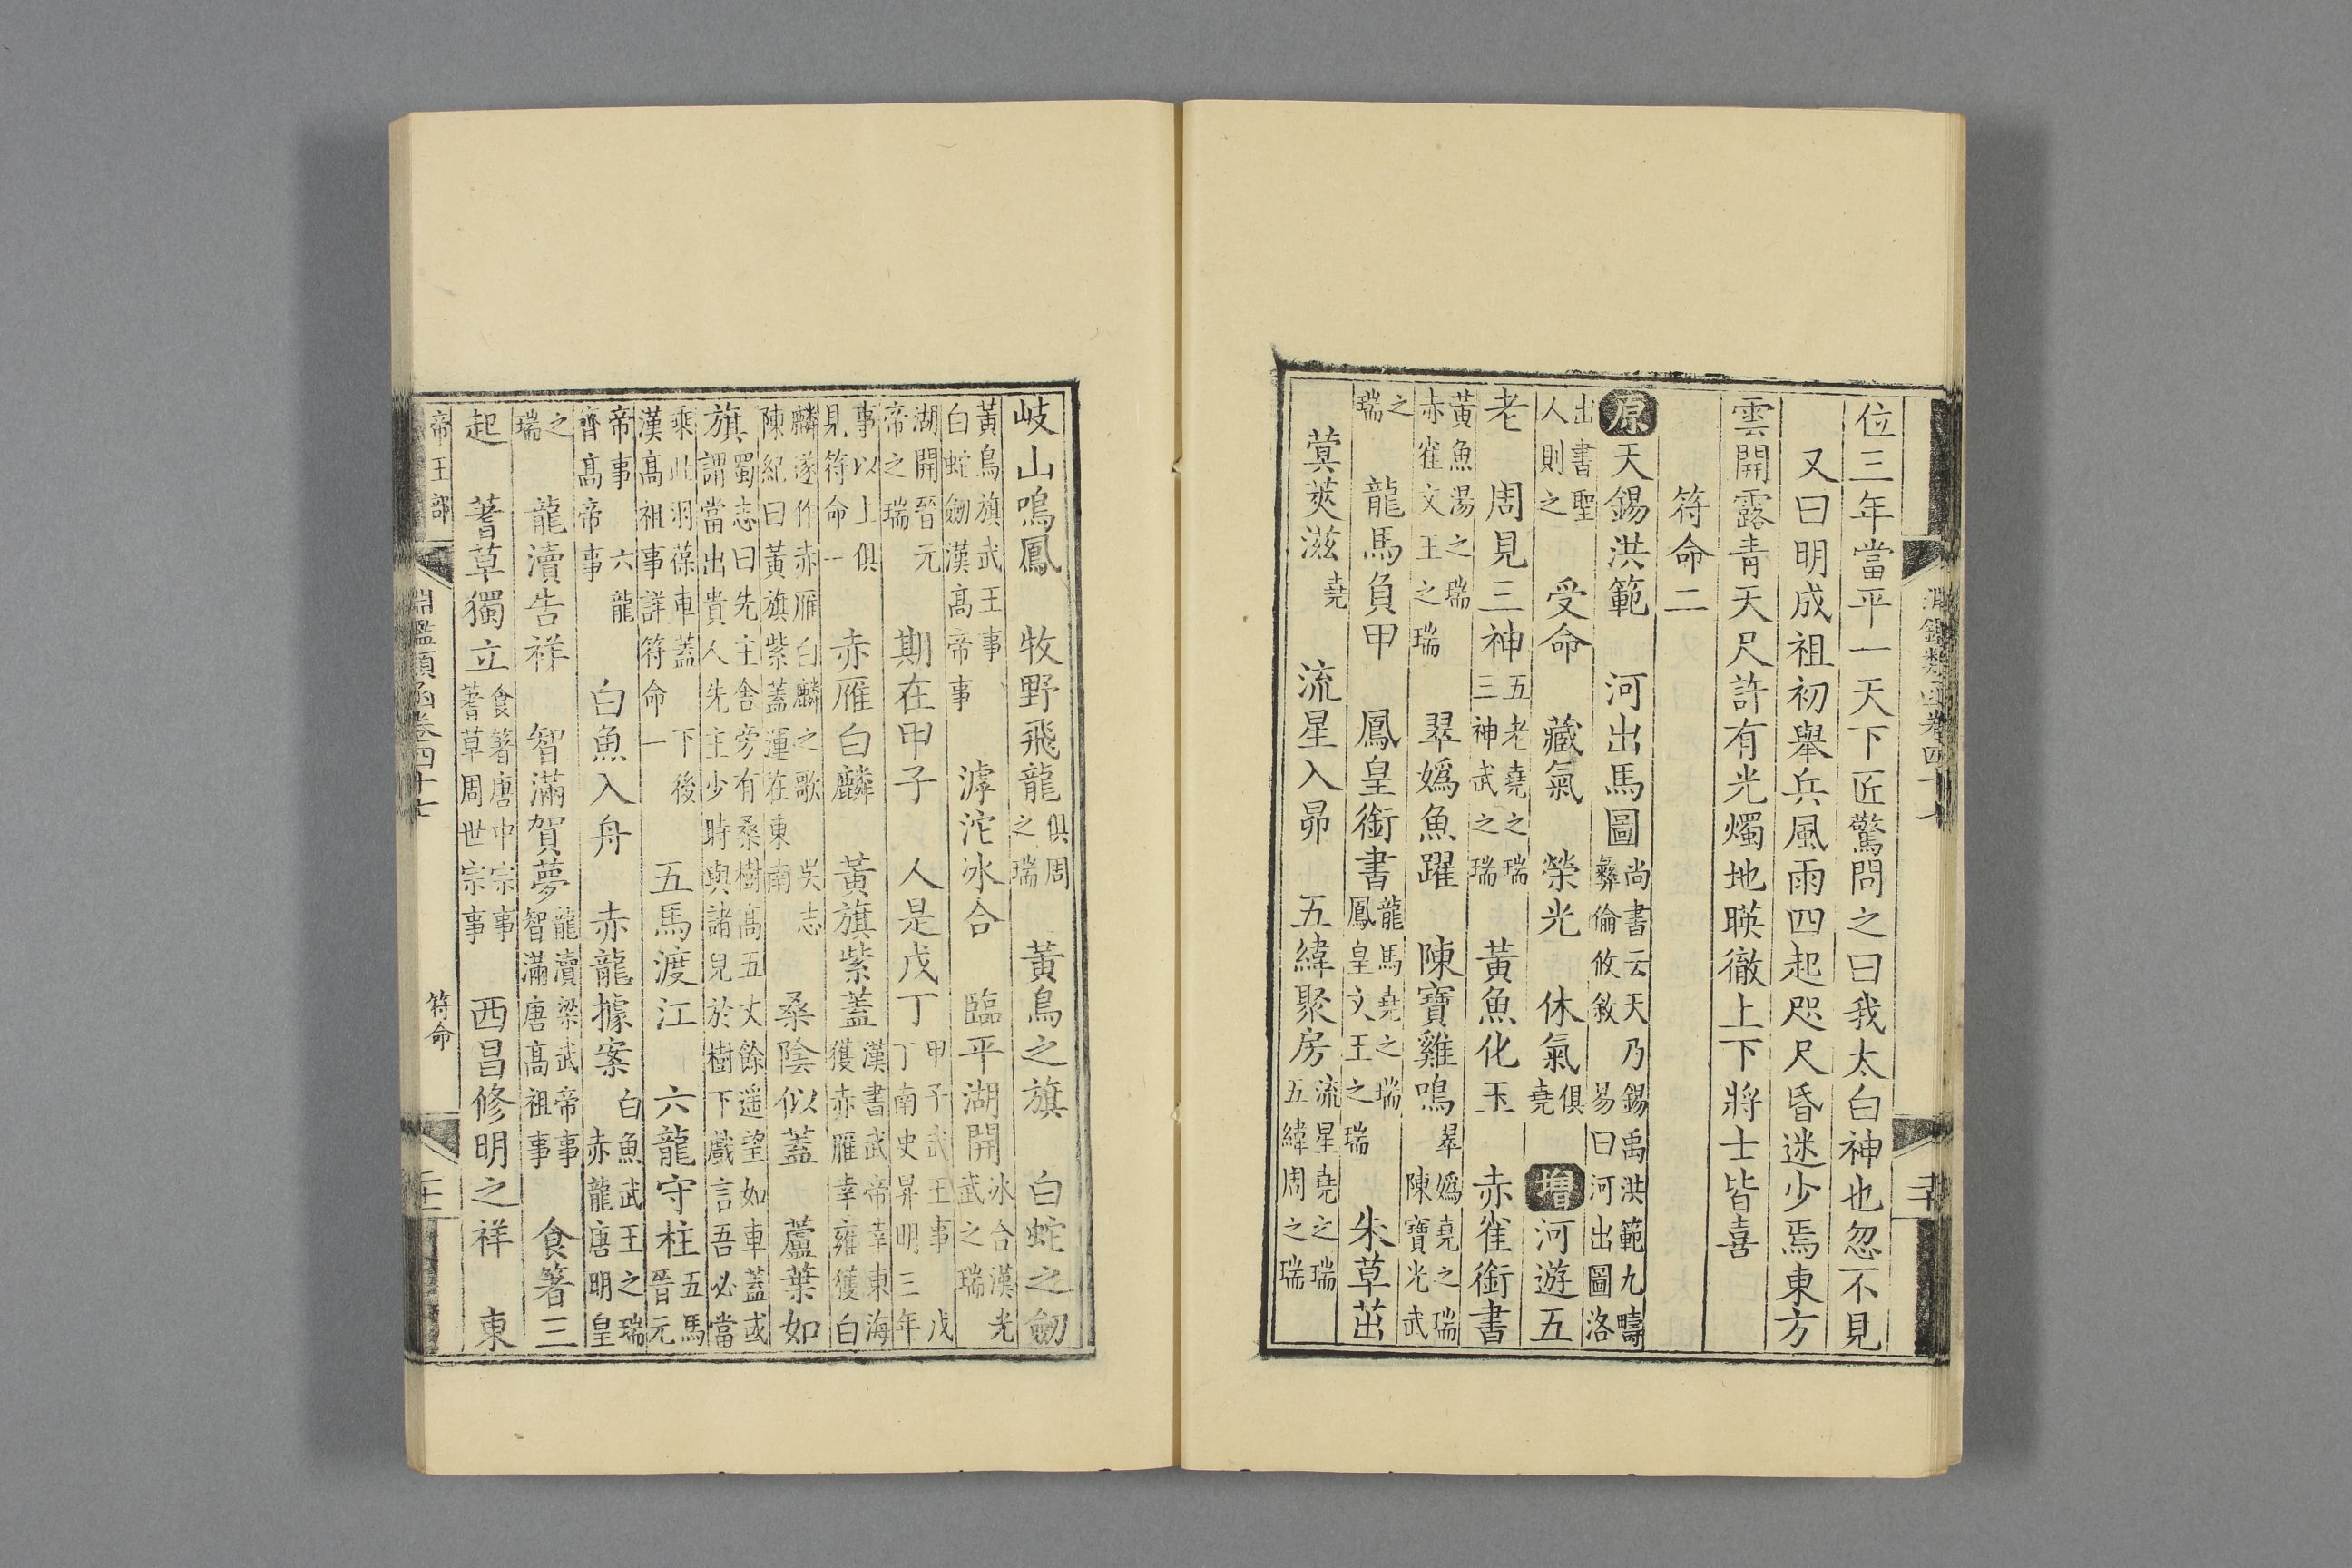 淵鑑類函卷四十七
位三年當平一天下匠驚問之曰我太白神也忽不見
又曰明成祖初舉兵風雨四起咫尺昏迷少焉東方
雲開露青天尺許有光燭地暎徹上下將士皆喜
符命二
原天錫洪範　河出馬圖尚書云天乃錫禹洪範九疇彝倫攸敘　易曰河出圖洛
出書聖人則之　受命　藏氣　榮光　休氣俱堯　增河遊五
老　周見三神五老堯之瑞三神武之瑞　黃魚化玉　赤雀銜書
黃魚湯之瑞赤雀文王之瑞　翠媯魚躍　陳寶雞鳴翠媯堯之瑞陳寶光武
之瑞　龍馬負甲　鳳皇銜書龍馬堯之瑞鳳皇文王之瑞　朱草茁
蓂莢滋堯　流星入昴　五緯聚房流星堯之瑞五緯周之瑞
岐山鳴鳳　牧野飛龍俱周之瑞　黃鳥之旗　白蛇之劒
黃鳥旗武王事白蛇劒漢高帝事　滹沱冰合　臨平湖開冰合漢光武之瑞
湖開晉元帝之瑞　期在甲子　人是戊丁甲子武王事　戊丁南史昇明三年
事以上俱見符命一　赤雁白麟　黃旗紫蓋漢書武帝幸東海獲赤雁幸雍獲白
麟遂作赤雁白麟之歌　吳志陳紀曰黃旗紫蓋運在東南　桑陰似蓋　蘆葉如
旗蜀志曰先主舍旁有桑樹高五丈餘遥望如車蓋或謂當出貴人先主少時與諸兒於樹下戲言吾必當
乘此羽葆車蓋　下後漢高祖事詳符命一　五馬渡江　六龍守柱五馬晉元
帝事　六龍齊高帝事　白魚入舟　赤龍據案白魚武王之瑞赤龍唐明皇
之瑞　龍瀆告祥　智滿賀夢龍瀆梁武帝事智滿唐高祖事　食箸三
起　蓍草獨立食箸唐中宗事蓍草周世宗事　西昌修明之祥　東
帝王部　淵鑑類函卷四十七　符命